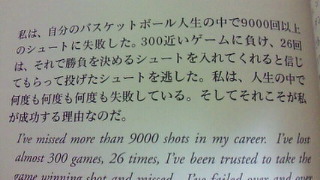 私は、自分のバスケットボール人生の中で9000回以上
のシュートに失敗した。300近いゲームに負け、26回
は、それで勝負を決めるシュートを入れてくれると信じ
てもらって投げたシュートを逃した。私は、人生の中で
何度も何度も何度も失敗している。そしてそれこそが私
が成功する理由なのだ。
I've missed more than 9000 shots in my career. I've lost
almost 300 games, 26 times, I've been trusted to take the
game winning shot and missed. I've failed over and over